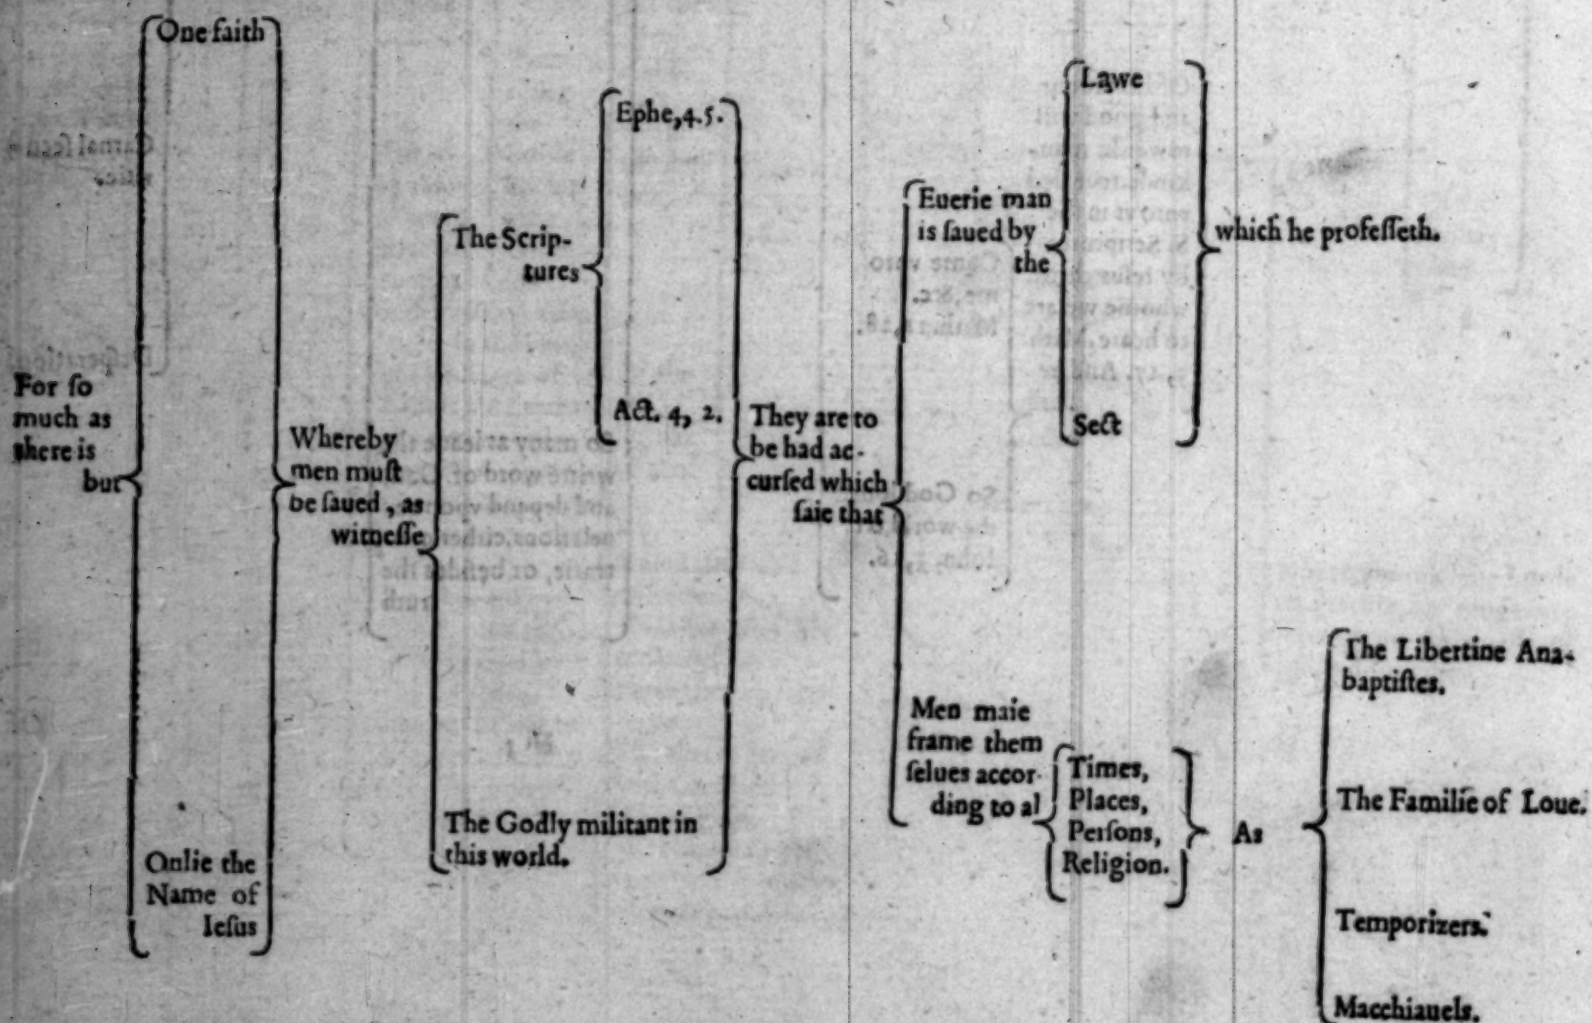 For ſo
much as
there is
but
One faith
Onlie the
Name of
Ieſus
Whereby
men muſt
be ſaued, as
witneſſe
The Scrip-
tures
Ephe,4.5.
Act. 4, 2.
The Godly militant in
this world.
They are to
be had ac-
curſed which
ſaie that
Euerie man
is ſaued by
the
Lawe
Sect
which he profeſſeth.
Men maie
frame them
ſelues accor-
ding to al
Times,
Places,
Perſons,
Religion.
As
The Libertine Ana-
baptiſtes.
The Familie of Loue.
Temporizers.
Macchiauels.